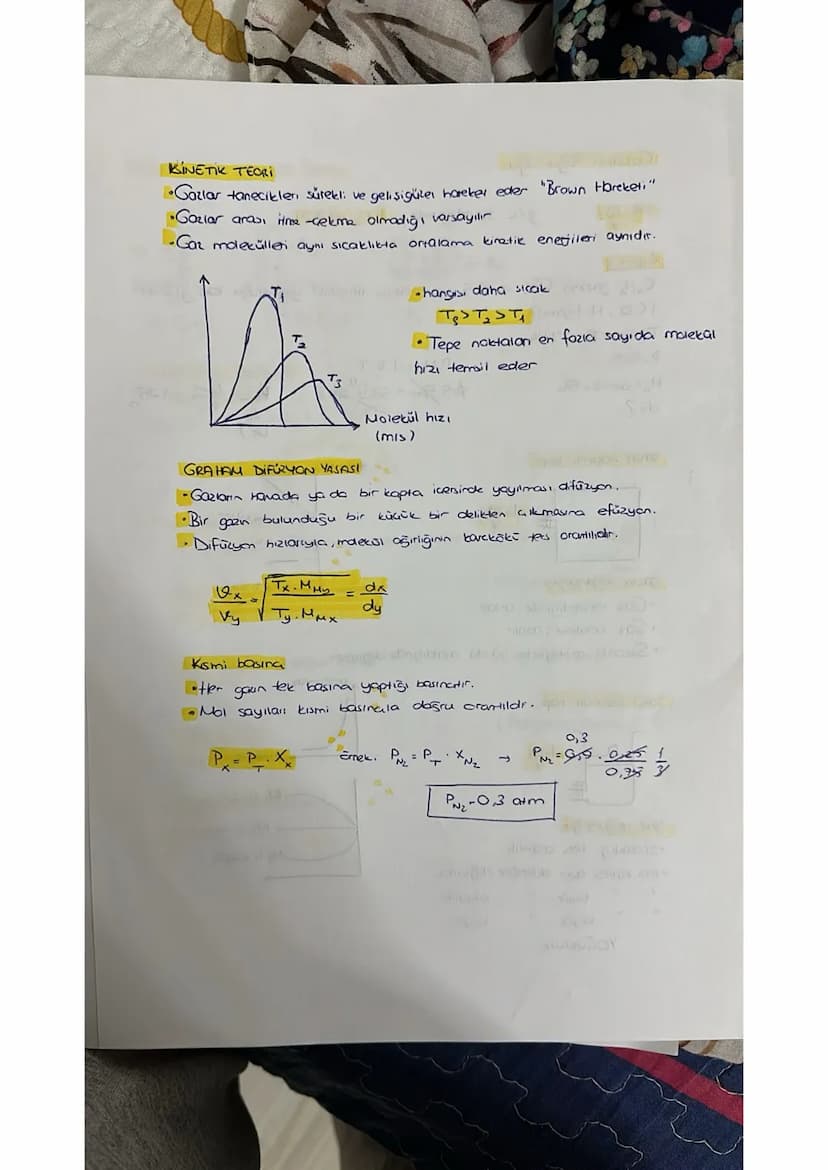 KİNETİK TEORİ
• Gazlar tanecikleri sürekli ve gelişigüzel hareket eder "Brown Hareketi"
• Gazlar arası itme-çekme olmadığı varsayılır
• Gaz molekülleri aynı sıcaklıkta ortalama kinetik enerjileri aynıdır.
T1
T2
T3
Molekül hızı
(m/s)
• hangisi daha sıcak
T3 > T2 > T1
• Tepe noktaları en fazla sayıda molekül
hızı temsil eder
GRAHAM DİFÜZYON YASASI
• Gazların havada ya da bir kapta içerinde yayılması difüzyon.
• Bir gazın bulunduğu bir küçük bir delikten çıkmasına efüzyon.
• Difüzyon hızlarıyla, molekül ağırlığının karekökü ters orantılıdır.
Vx/Vy = √(Tx . MMy / Ty . MMx) = dx/dy
Kısmi basınç
• Her gazın tek başına yaptığı basınçtır.
• Mol sayıları kısmi basınçla doğru orantılıdır.
Px = PT . Xx
örnek. PN2 = PT . XN2 → PN2 = 0,9 . 0,25/0,75 1/3
0,3
PN2 = 0,3 atm